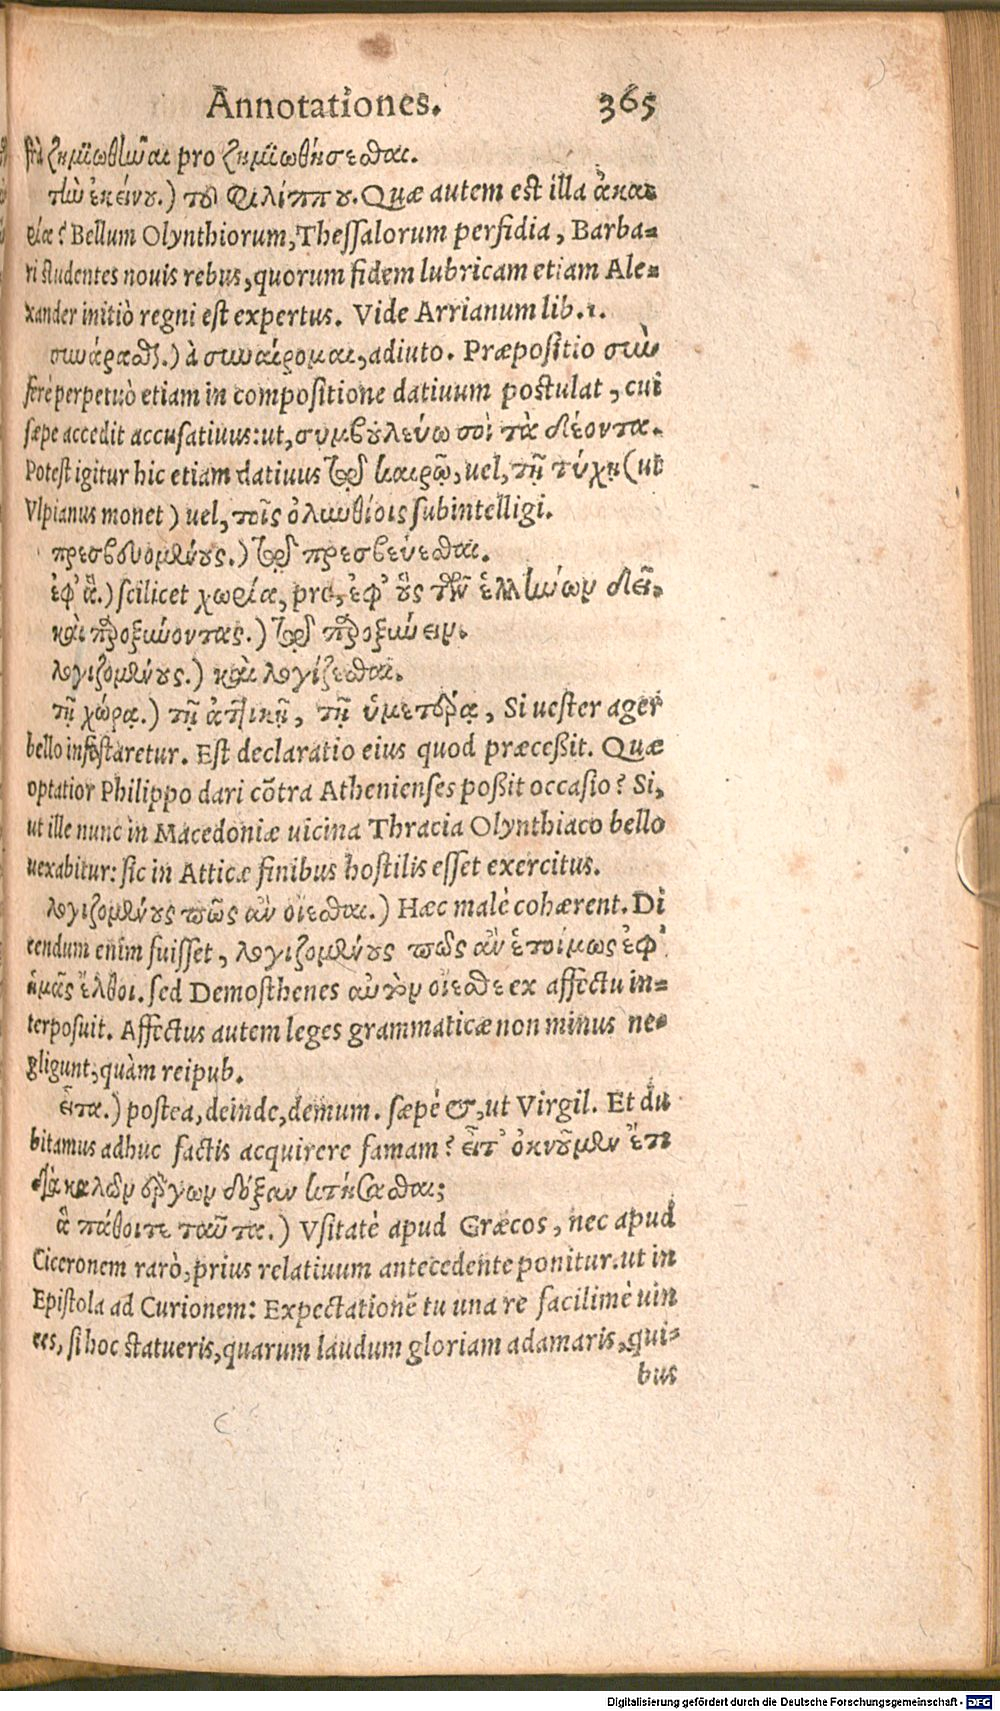 Annotationes. 365
ζημιωθῆναι pro ζημιωθήσεσθαι.
τὴν ἐκείνου.) τοῦ Φιλίππου. Quæ autem est illa ἀκαι-
ρία? Bellum Olynthiorum, Thessalorum perfidia, Barba-
ri studentes nouis rebus, quorum fidem lubricam etiam Ale-
xander initiò regni est expertus. Vide Arrianum lib. 1.
συνάρασθε.) à συναίρομαι, adiuto. Præpositio σὺν
ferè perpetuò etiam in compositione datiuum postulat, cui
sæpe accedit accusatiuus: ut, συμβουλεύω σοὶ τὰ δέοντα.
Potest igitur hic etiam datiuus τῷ καιρῷ, vel, τῇ τύχῃ (ut
Vlpianus monet) uel, τοῖς ὀλυνθίοις subintelligi.
πρεσβευομένους.) πρεσβεύεσθαι.
ἐφ' ἃ.) scilicet χωρία, pro, ἐφ' οὓς τῶν ἑλλήνων δεῖ.
καὶ παροξύνοντας.) παροξύνειν.
λογιζομένους.) καὶ λογίζεσθαι.
τῇ χώρᾳ.) τῇ ἀττικῇ, τῇ ὑμετέρᾳ, Si uester ager
bello infestaretur. Est declaratio eius quod præceßit. Quæ
optatior Philippo dari cõtra Athenienses poßit occasio? Si,
ut ille nunc in Macedoniæ uicina Thracia Olynthiaco bello
uexabitur: sic in Atticæ finibus hostilis esset exercitus.
λογιζομένους πῶς ἂν οἴεσθαι.) Hæc malè cohærent. Di
cendum enim fuisset, λογιζομένους πῶς ἂν ἑτοίμως ἐφ'
ἡμᾶς ἔλθοι. sed Demosthenes αὐτὸν οἴεσθε ex affectu in-
terposuit. Affectus autem leges grammaticæ non minus ne-
gligunt, quàm reipub.
εἶτα.) postea, deinde, demum. sæpè &, ut Virgil. Et du
bitamus adhuc factis acquirere famam? εἶτ' ὀκνοῦμεν ἔτι
διὰ καλῶν ἔργων δόξαν κτήσασθαι;
ἃ πάθοιτε ταῦτα.) Vsitatè apud Græcos, nec apud
Ciceronem rarò, prius relatiuum antecedente ponitur. ut in
Epistola ad Curionem: Expectationẽ tu una re facilimè uin
ces, si hoc statueris, quarum laudum gloriam adamaris, qui-
bus
Digitalisierung gefördert durch die Deutsche Forschungsgemeinschaft - DFG